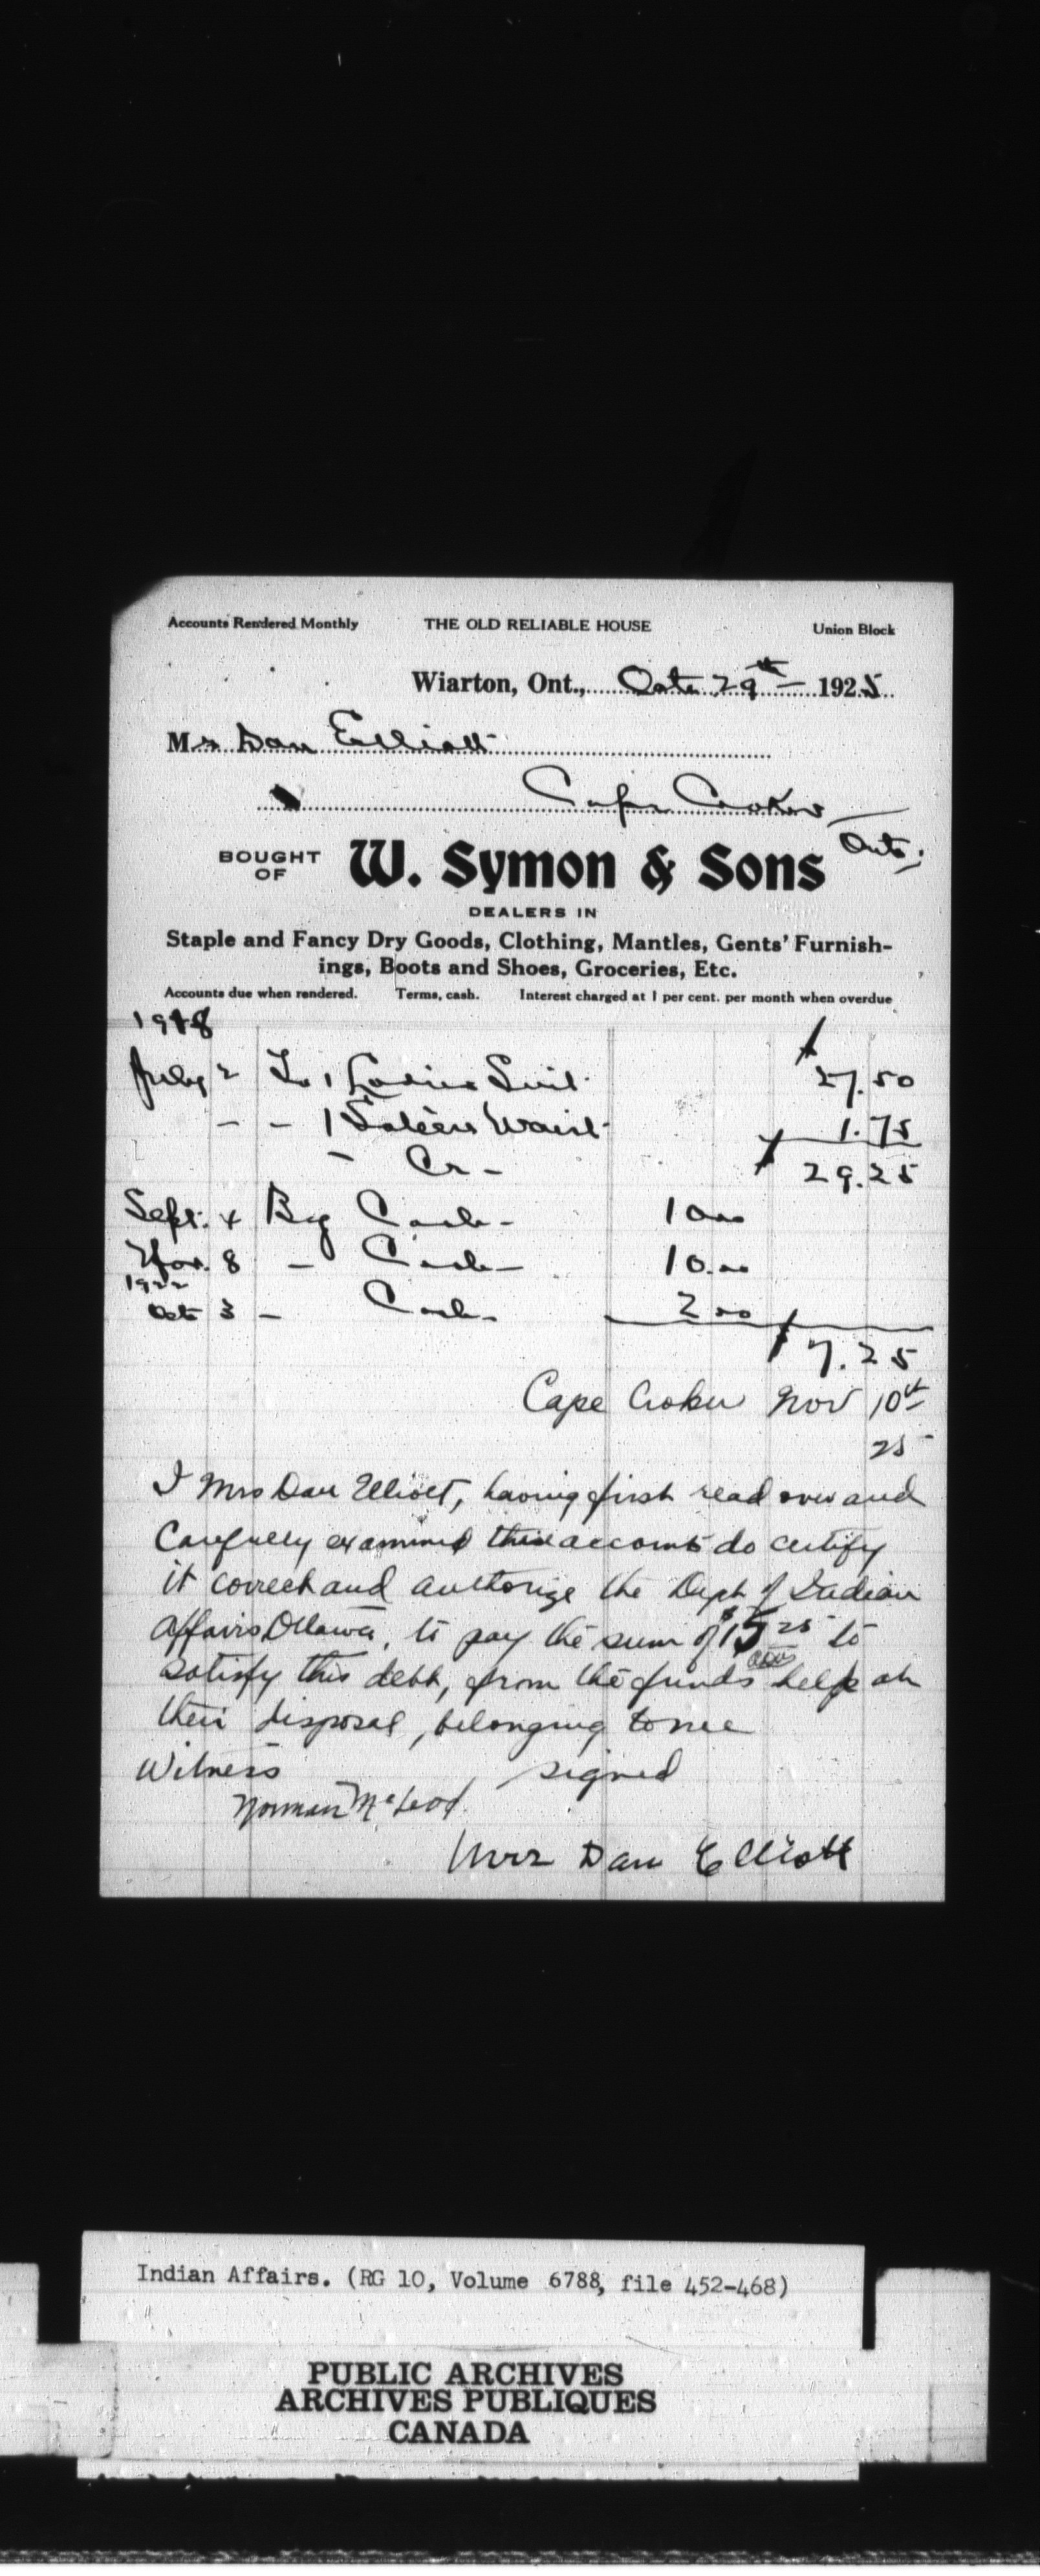 Accounts Rendered Monthly THE OLD RELIABLE HOUSE Union Block
Wiarton, Ont., Octr 29th 1925
Mrs Dan Elliott
Cape Croker
Ont.
BOUGHT OF W. Symon & Sons
DEALERS IN
Staple and Fancy Dry Goods, Clothing, Mantles, Gents' Furnish-
ings, Boots and Shoes, Groceries, Etc.
Accounts due when rendered. Terms, cash. Interest charged at 1 per cent. per month when overdue
1918
July 2 To 1 Ladies Suit $ 27.50
- - 1 Sateen Waist 1.75
- Cr - $ 29.25
Sept. 4 By Cash - 10 00
Nov. 8 - Cash - 10.00
1922
Oct 3 - Cash - 2 00
$ 7.25
Cape Croker Nov 10th
25
I Mrs Dan Elliott, having first read over and
Carefully examined this account do certify
it correct and authorize the Dept of Indian
Affairs Ottawa, to pay the sum of $ 25 to
satisfy this debt, from the funds help at
their disposal, belonging to me
Witness signed
Norman McLeod
Mrs Dan Elliott
Indian Affairs. (RG 10, Volume 6788, file 452-468)
PUBLIC ARCHIVES
ARCHIVES PUBLIQUES
CANADA